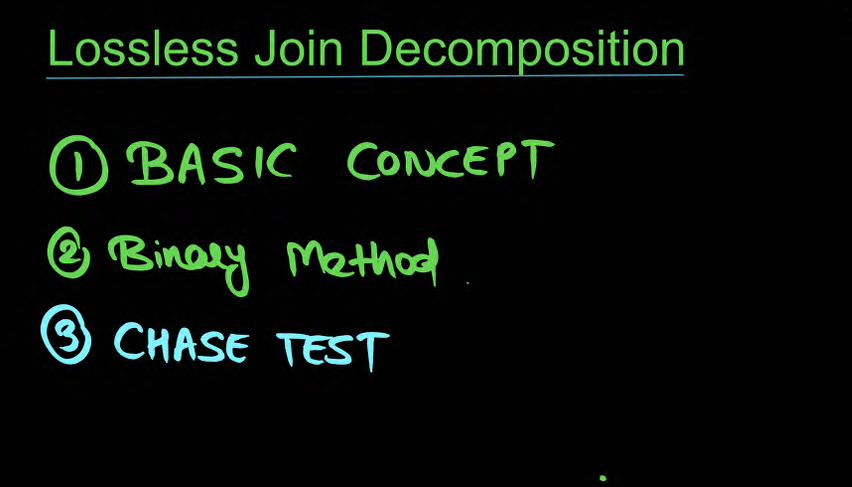 Lossless Join Decomposition
① BASIC CONCEPT
② Binary Method
③ CHASE TEST